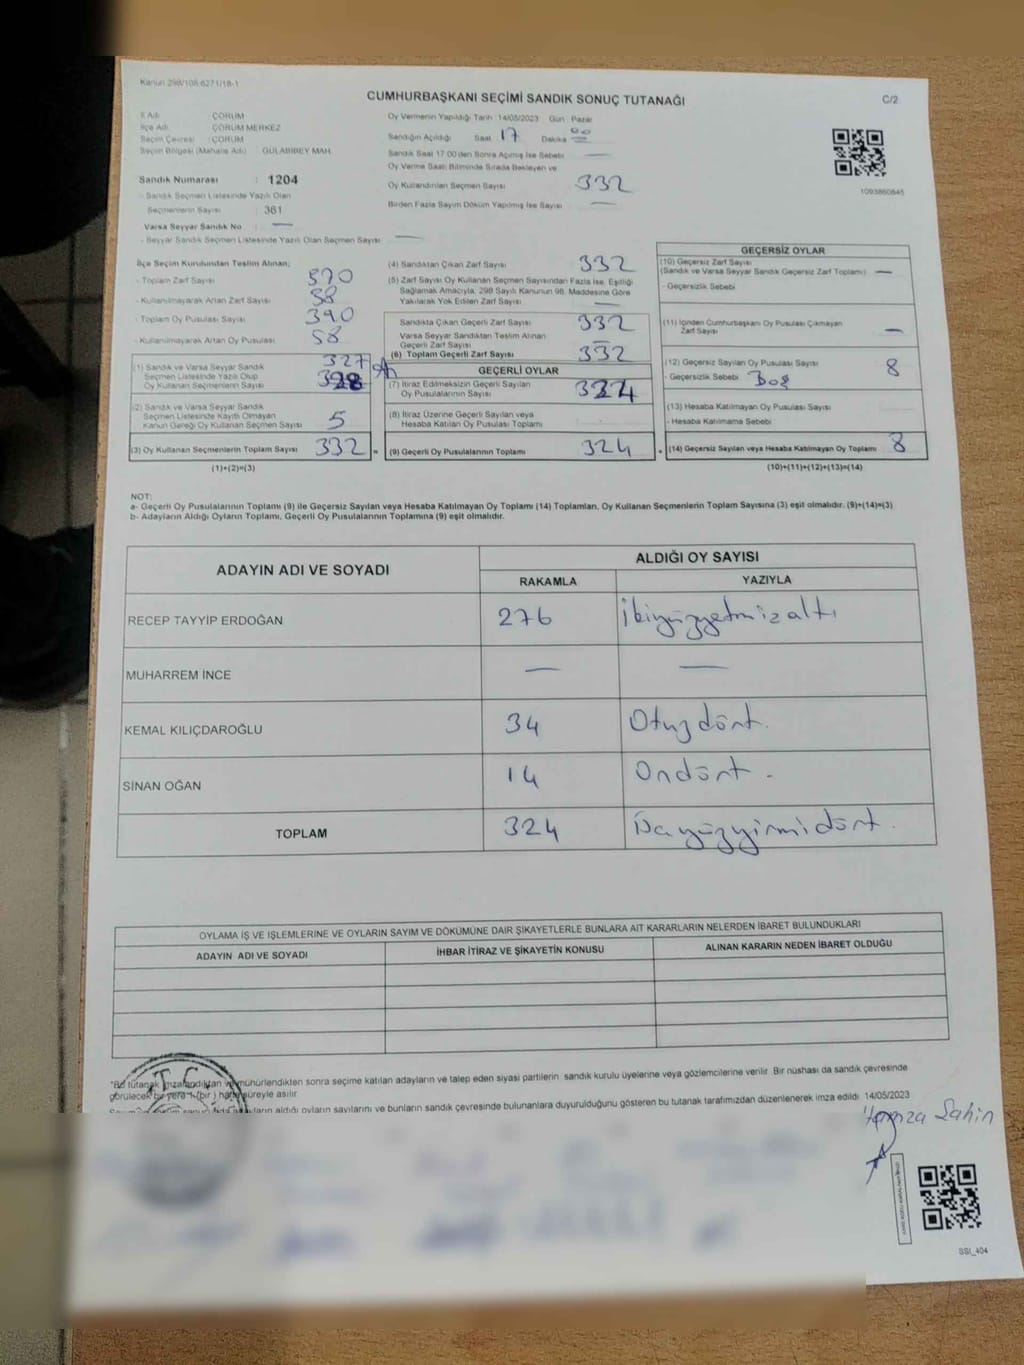 Kanun 298/105-6271/18-1
CUMHURBAŞKANI SEÇİMİ SANDIK SONUÇ TUTANAĞI
C/2
İl Adı : ÇORUM
İlçe Adı : ÇORUM MERKEZ
Seçim Çevresi : ÇORUM
Seçim Bölgesi (Mahalle Adı) : GÜLABİBEY MAH.
Sandık Numarası : 1204
- Sandık Seçmen Listesinde Yazılı Olan
Seçmenlerin Sayısı : 361
Varsa Seyyar Sandık No : —
- Seyyar Sandık Seçmen Listesinde Yazılı Olan Seçmen Sayısı —
Oy Vermenin Yapıldığı Tarih 14/05/2023 Gün Pazar
Sandığın Açıldığı Saat 17 Dakika 00
Sandık Saat 17:00'den Sonra Açılmış İse Sebebi —
Oy Verme Saati Bitiminde Sırada Bekleyen ve
Oy Kullandırılan Seçmen Sayısı 332
Birden Fazla Sayım Döküm Yapılmış İse Sayısı —
1093860645
İlçe Seçim Kurulundan Teslim Alınan;
- Toplam Zarf Sayısı 370
- Kullanılmayarak Artan Zarf Sayısı 38
- Toplam Oy Pusulası Sayısı 390
- Kullanılmayarak Artan Oy Pusulası 58
(1) Sandık ve Varsa Seyyar Sandık 327
Seçmen Listesinde Yazılı Olup
Oy Kullanan Seçmenlerin Sayısı
(2) Sandık ve Varsa Seyyar Sandık
Seçmen Listesinde Kayıtlı Olmayan
Kanun Gereği Oy Kullanan Seçmen Sayısı 5
(3) Oy Kullanan Seçmenlerin Toplam Sayısı 332 =
(1)+(2)=(3)
(4) Sandıktan Çıkan Zarf Sayısı 332
(5) Zarf Sayısı Oy Kullanan Seçmen Sayısından Fazla İse, Eşitliği
Sağlamak Amacıyla, 298 Sayılı Kanunun 98. Maddesine Göre
Yakılarak Yok Edilen Zarf Sayısı —
Sandıkta Çıkan Geçerli Zarf Sayısı 332
Varsa Seyyar Sandıktan Teslim Alınan
Geçerli Zarf Sayısı —
(6) Toplam Geçerli Zarf Sayısı 332
GEÇERLİ OYLAR
(7) İtiraz Edilmeksizin Geçerli Sayılan
Oy Pusulalarının Sayısı 324
(8) İtiraz Üzerine Geçerli Sayılan veya
Hesaba Katılan Oy Pusulası Toplamı
(9) Geçerli Oy Pusulalarının Toplamı 324 +
GEÇERSİZ OYLAR
(10) Geçersiz Zarf Sayısı
(Sandık ve Varsa Seyyar Sandık Geçersiz Zarf Toplamı) —
- Geçersizlik Sebebi
(11) İçinden Cumhurbaşkanı Oy Pusulası Çıkmayan
Zarf Sayısı —
(12) Geçersiz Sayılan Oy Pusulası Sayısı 8
- Geçersizlik Sebebi Boş
(13) Hesaba Katılmayan Oy Pusulası Sayısı
- Hesaba Katılmama Sebebi
(14) Geçersiz Sayılan veya Hesaba Katılmayan Oy Toplamı 8
(10)+(11)+(12)+(13)=(14)
NOT:
a- Geçerli Oy Pusulalarının Toplamı (9) ile Geçersiz Sayılan veya Hesaba Katılmayan Oy Toplamı (14) Toplamları, Oy Kullanan Seçmenlerin Toplam Sayısına (3) eşit olmalıdır. (9)+(14)=(3)
b- Adayların Aldığı Oyların Toplamı, Geçerli Oy Pusulalarının Toplamına (9) eşit olmalıdır.
ADAYIN ADI VE SOYADI
ALDIĞI OY SAYISI
RAKAMLA YAZIYLA
RECEP TAYYİP ERDOĞAN 276 ikiyüzyetmişaltı
MUHARREM İNCE — —
KEMAL KILIÇDAROĞLU 34 Otuzdört.
SİNAN OĞAN 14 Ondört -
TOPLAM 324 üçyüzyirmidört.
OYLAMA İŞ VE İŞLEMLERİNE VE OYLARIN SAYIM VE DÖKÜMÜNE DAİR ŞİKAYETLERLE BUNLARA AİT KARARLARIN NELERDEN İBARET BULUNDUKLARI
ADAYIN ADI VE SOYADI İHBAR İTİRAZ VE ŞİKAYETİN KONUSU ALINAN KARARIN NEDEN İBARET OLDUĞU
*Bu tutanak imzalandıktan ve mühürlendikten sonra seçime katılan adayların ve talep eden siyasi partilerin sandık kurulu üyelerine veya gözlemcilerine verilir. Bir nüshası da sandık çevresinde
görülecek bir yere 1 (bir) hafta süreyle asılır.
adayların aldığı oyların sayılarını ve bunların sandık çevresinde bulunanlara duyurulduğunu gösteren bu tutanak tarafımızdan düzenlenerek imza edildi. 14/05/2023
T.C.
Hamza Şahin
SSI_404